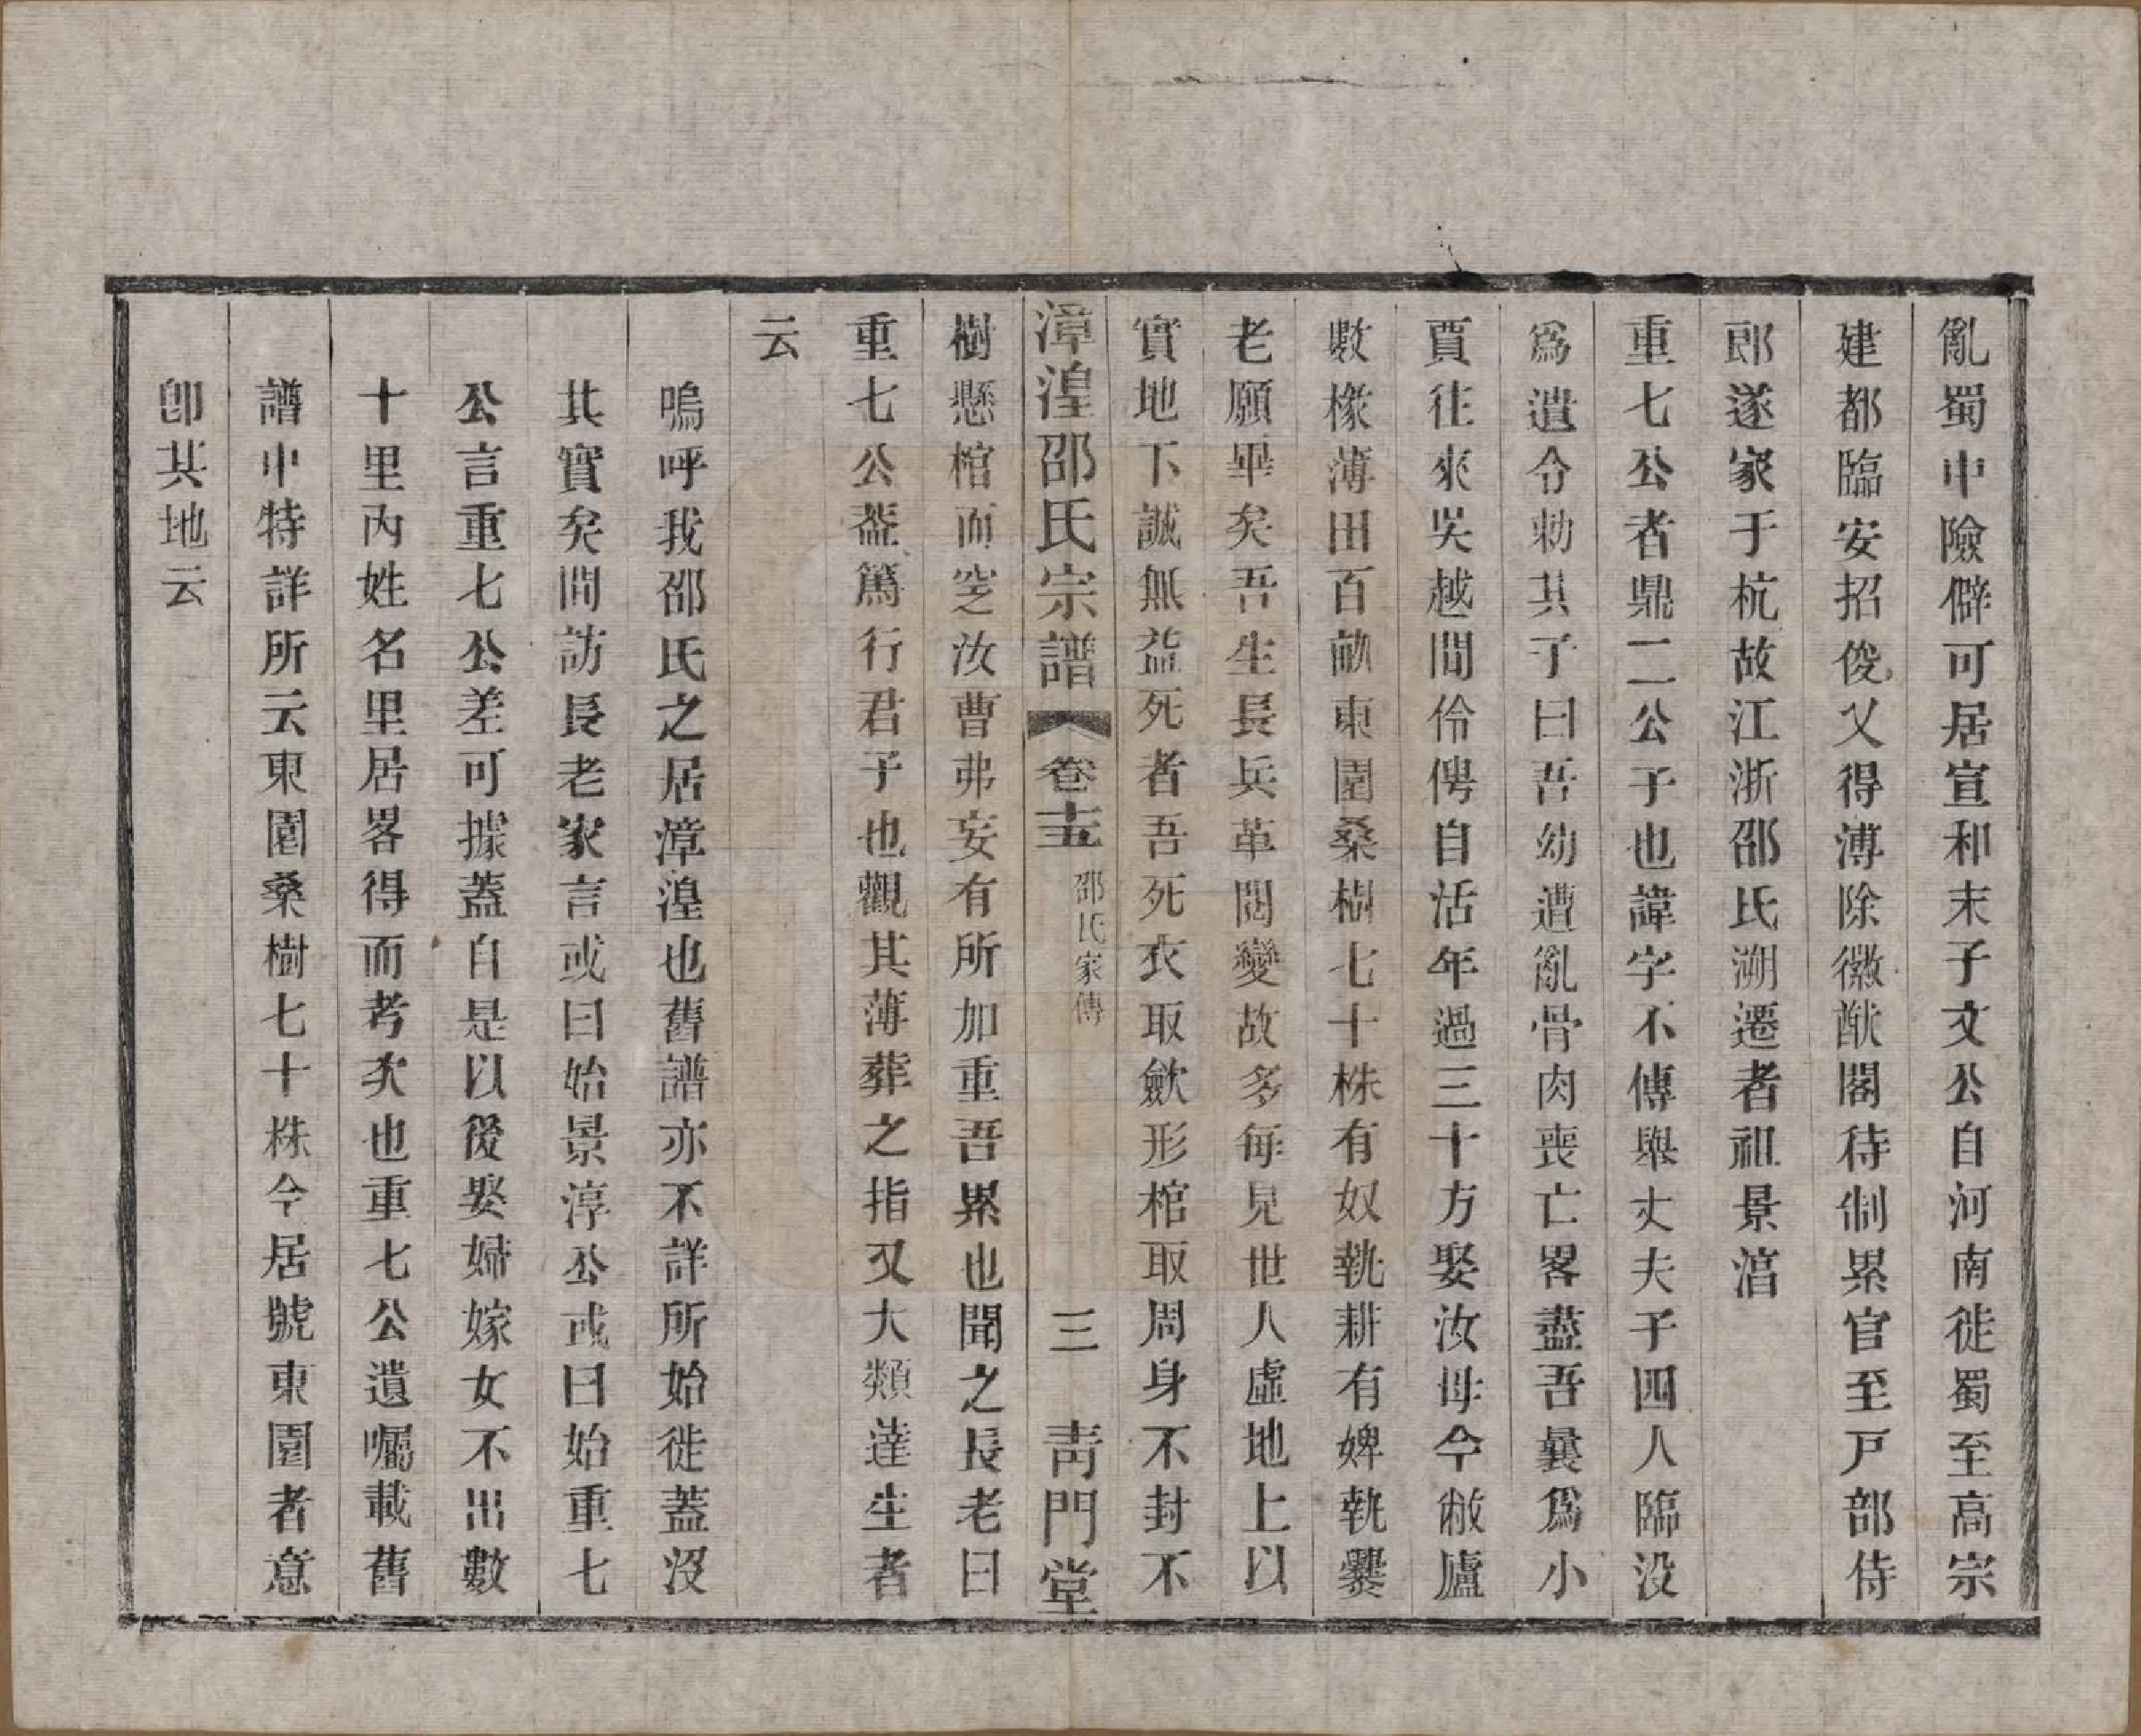 亂蜀中險僻可居宣和末子文公自河南徙蜀至高宗
建都臨安招俊乂得溥除徽猷閣待制累官至戸部侍
郎遂家于杭故江浙邵氏溯遷者祖景㴠
重七公者鼎二公子也諱字不傳舉丈夫子四人臨没
爲遺令勑其子曰吾幼遭亂骨肉喪亡畧盡吾曩爲小
賈往來吳越間伶俜自活年過三十方娶汝母今敝廬
數椽薄田百畝東園桑樹七十株有奴執耕有婢執爨
老願畢矣吾生長兵革閱變故多每見世人虛地上以
實地下誠無益死者吾死衣取歛形棺取周身不封不
漳湟邵氏宗譜　卷十五　邵氏家傳　三　青門堂
樹懸棺而窆汝曹弗妄有所加重吾累也聞之長老曰
重七公葢篤行君子也觀其薄葬之指又大類達生者
云
嗚呼我邵氏之居漳湟也舊譜亦不詳所始徙蓋沒
其實矣間訪長老家言或曰始景淳公或曰始重七
公言重七公差可據蓋自是以後娶婦嫁女不出數
十里內姓名里居畧得而考次也重七公遺囑載舊
譜中特詳所云東園桑樹七十株今居號東園者意
卽其地云